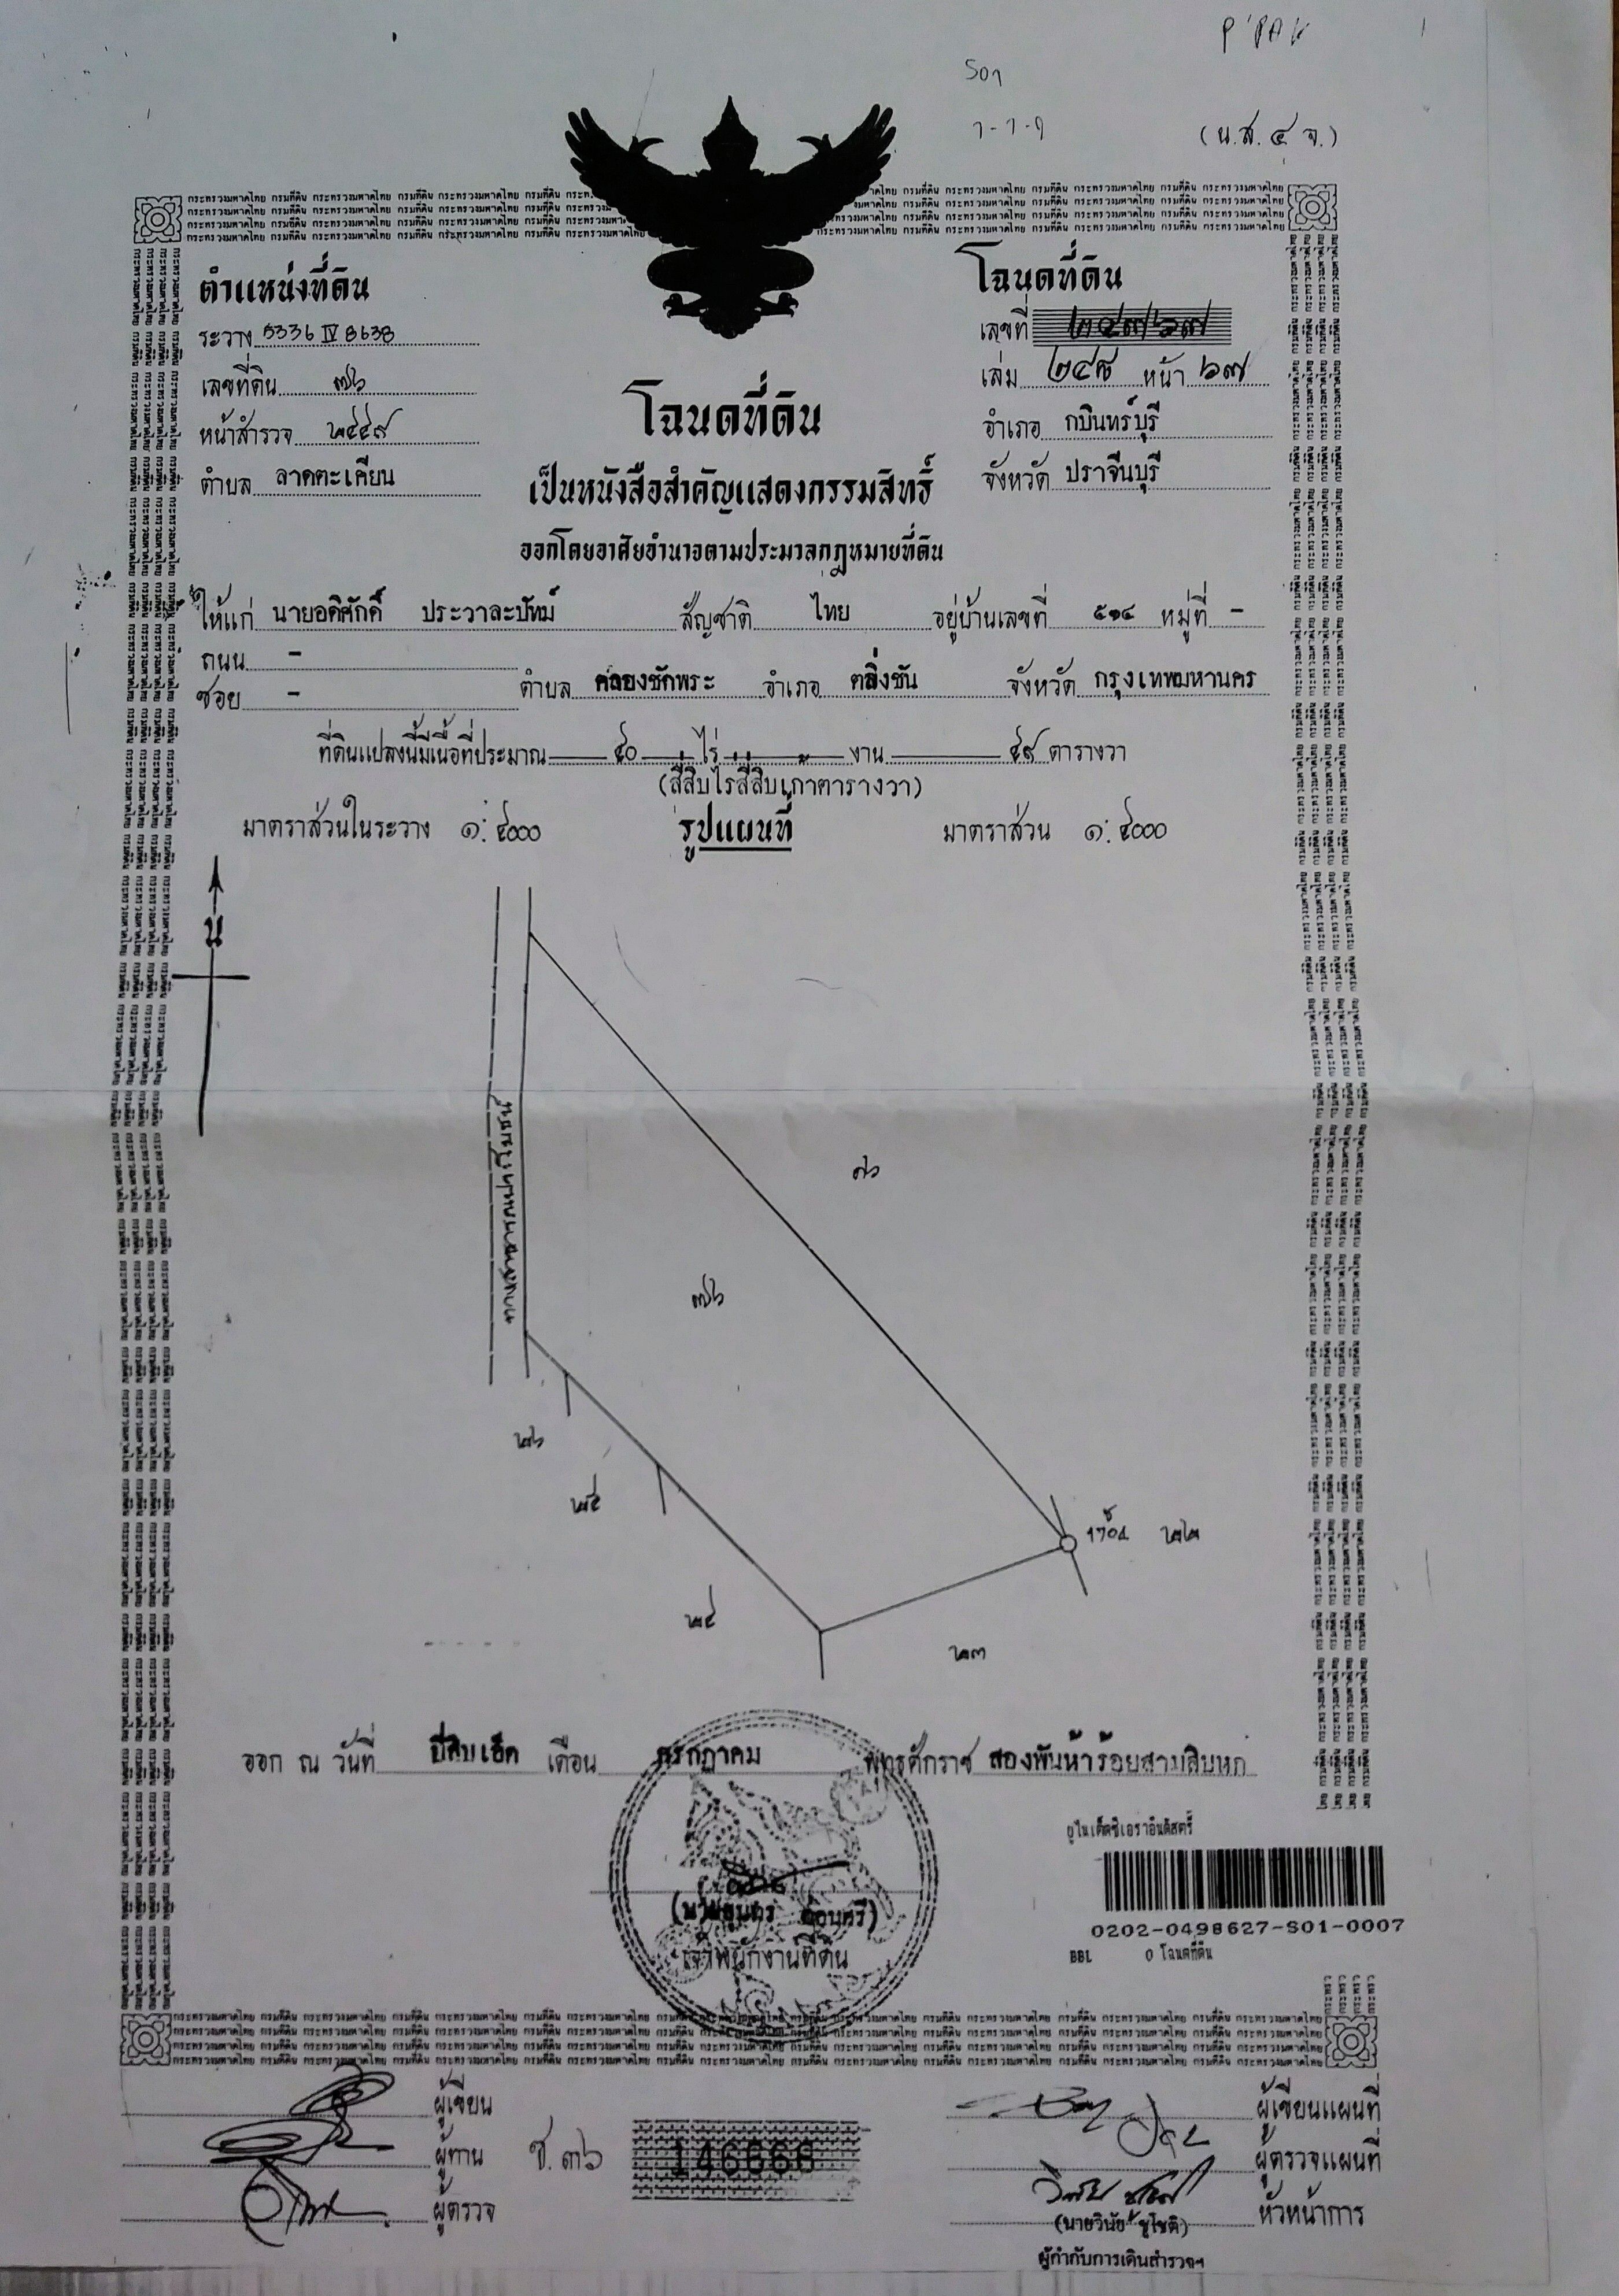 P'PAK
(น.ส. ๔ จ.)
ตำแหน่งที่ดิน
ระวาง 5336 IV 8638
เลขที่ดิน ๗๖
หน้าสำรวจ ๒๔๔๙
ตำบล ลาดตะเคียน
โฉนดที่ดิน
เลขที่ ๒๔๗๖๗
เล่ม ๒๔๘ หน้า ๖๗
อำเภอ กบินทร์บุรี
จังหวัด ปราจีนบุรี
โฉนดที่ดิน
เป็นหนังสือสำคัญแสดงกรรมสิทธิ์
ออกโดยอาศัยอำนาจตามประมวลกฎหมายที่ดิน
ให้แก่ นายอดิศักดิ์ ประวาละปัทม์ สัญชาติ ไทย อยู่บ้านเลขที่ ๕๑๔ หมู่ที่ -
ถนน -
ซอย - ตำบล คลองชักพระ อำเภอ ตลิ่งชัน จังหวัด กรุงเทพมหานคร
ที่ดินแปลงนี้มีเนื้อที่ประมาณ ๔๐ ไร่ งาน ๔๙ ตารางวา
(สี่สิบไร่สี่สิบเก้าตารางวา)
มาตราส่วนในระวาง ๑:๔๐๐๐ รูปแผนที่ มาตราส่วน ๑:๔๐๐๐
น
ทางสาธารณประโยชน์
๗๖
๒๖
๒๕
๒๔
๒๓
๒๒
ออก ณ วันที่ ยี่สิบเอ็ด เดือน กรกฎาคม พุทธศักราช สองพันห้าร้อยสามสิบหก
เจ้าพนักงานที่ดิน
ยูไนเต็ดซิเอราอินดัสตรี้
0202-0498627-S01-0007
BBL 0 โฉนดที่ดิน
ผู้เขียน
ผู้ทาน
ผู้ตรวจ
ช. ๓๖
146666
ผู้เขียนแผนที่
ผู้ตรวจแผนที่
หัวหน้าการ
(นายวินัย ชูโชติ)
ผู้กำกับการเดินสำรวจฯ
กรมที่ดิน กระทรวงมหาดไทย